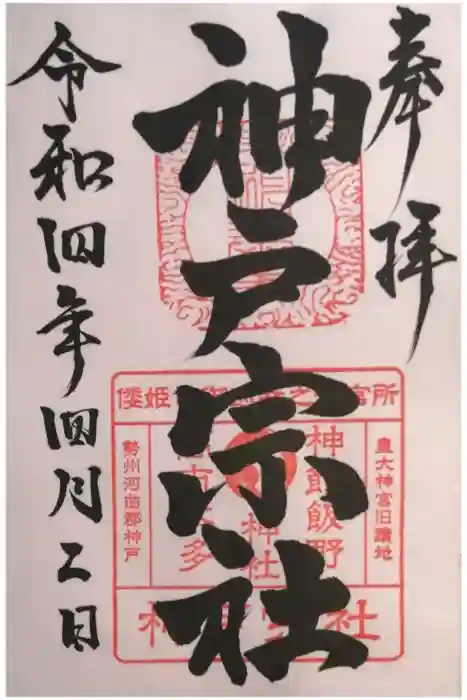 奉拝
神戸宗社
令和四年四月二日
皇大神宮旧蹟地
勢州河曲郡神戸
神館飯野
神社